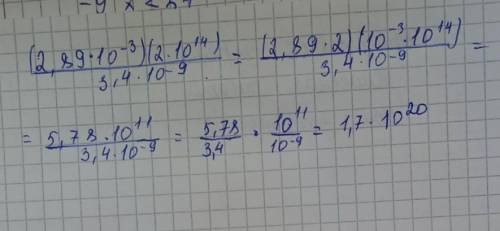 (2,89·10⁻³)(2·10¹⁴) / 3,4·10⁻⁹ = (2,89·2)(10⁻³·10¹⁴) / 3,4·10⁻⁹ =
= 5,78·10¹¹ / 3,4·10⁻⁹ = 5,78 / 3,4 · 10¹¹ / 10⁻⁹ = 1,7·10²⁰